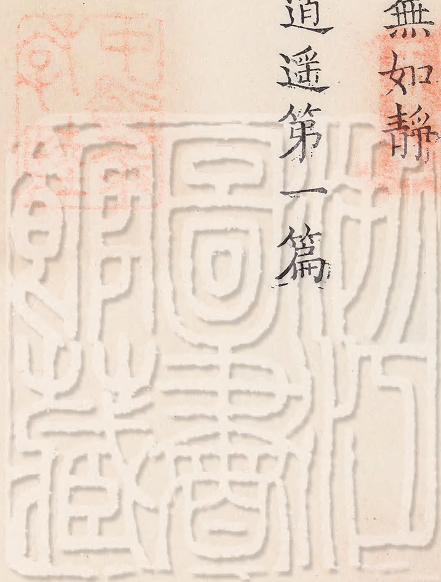 無如靜
道遥第一篇
浙江
圖書
館藏